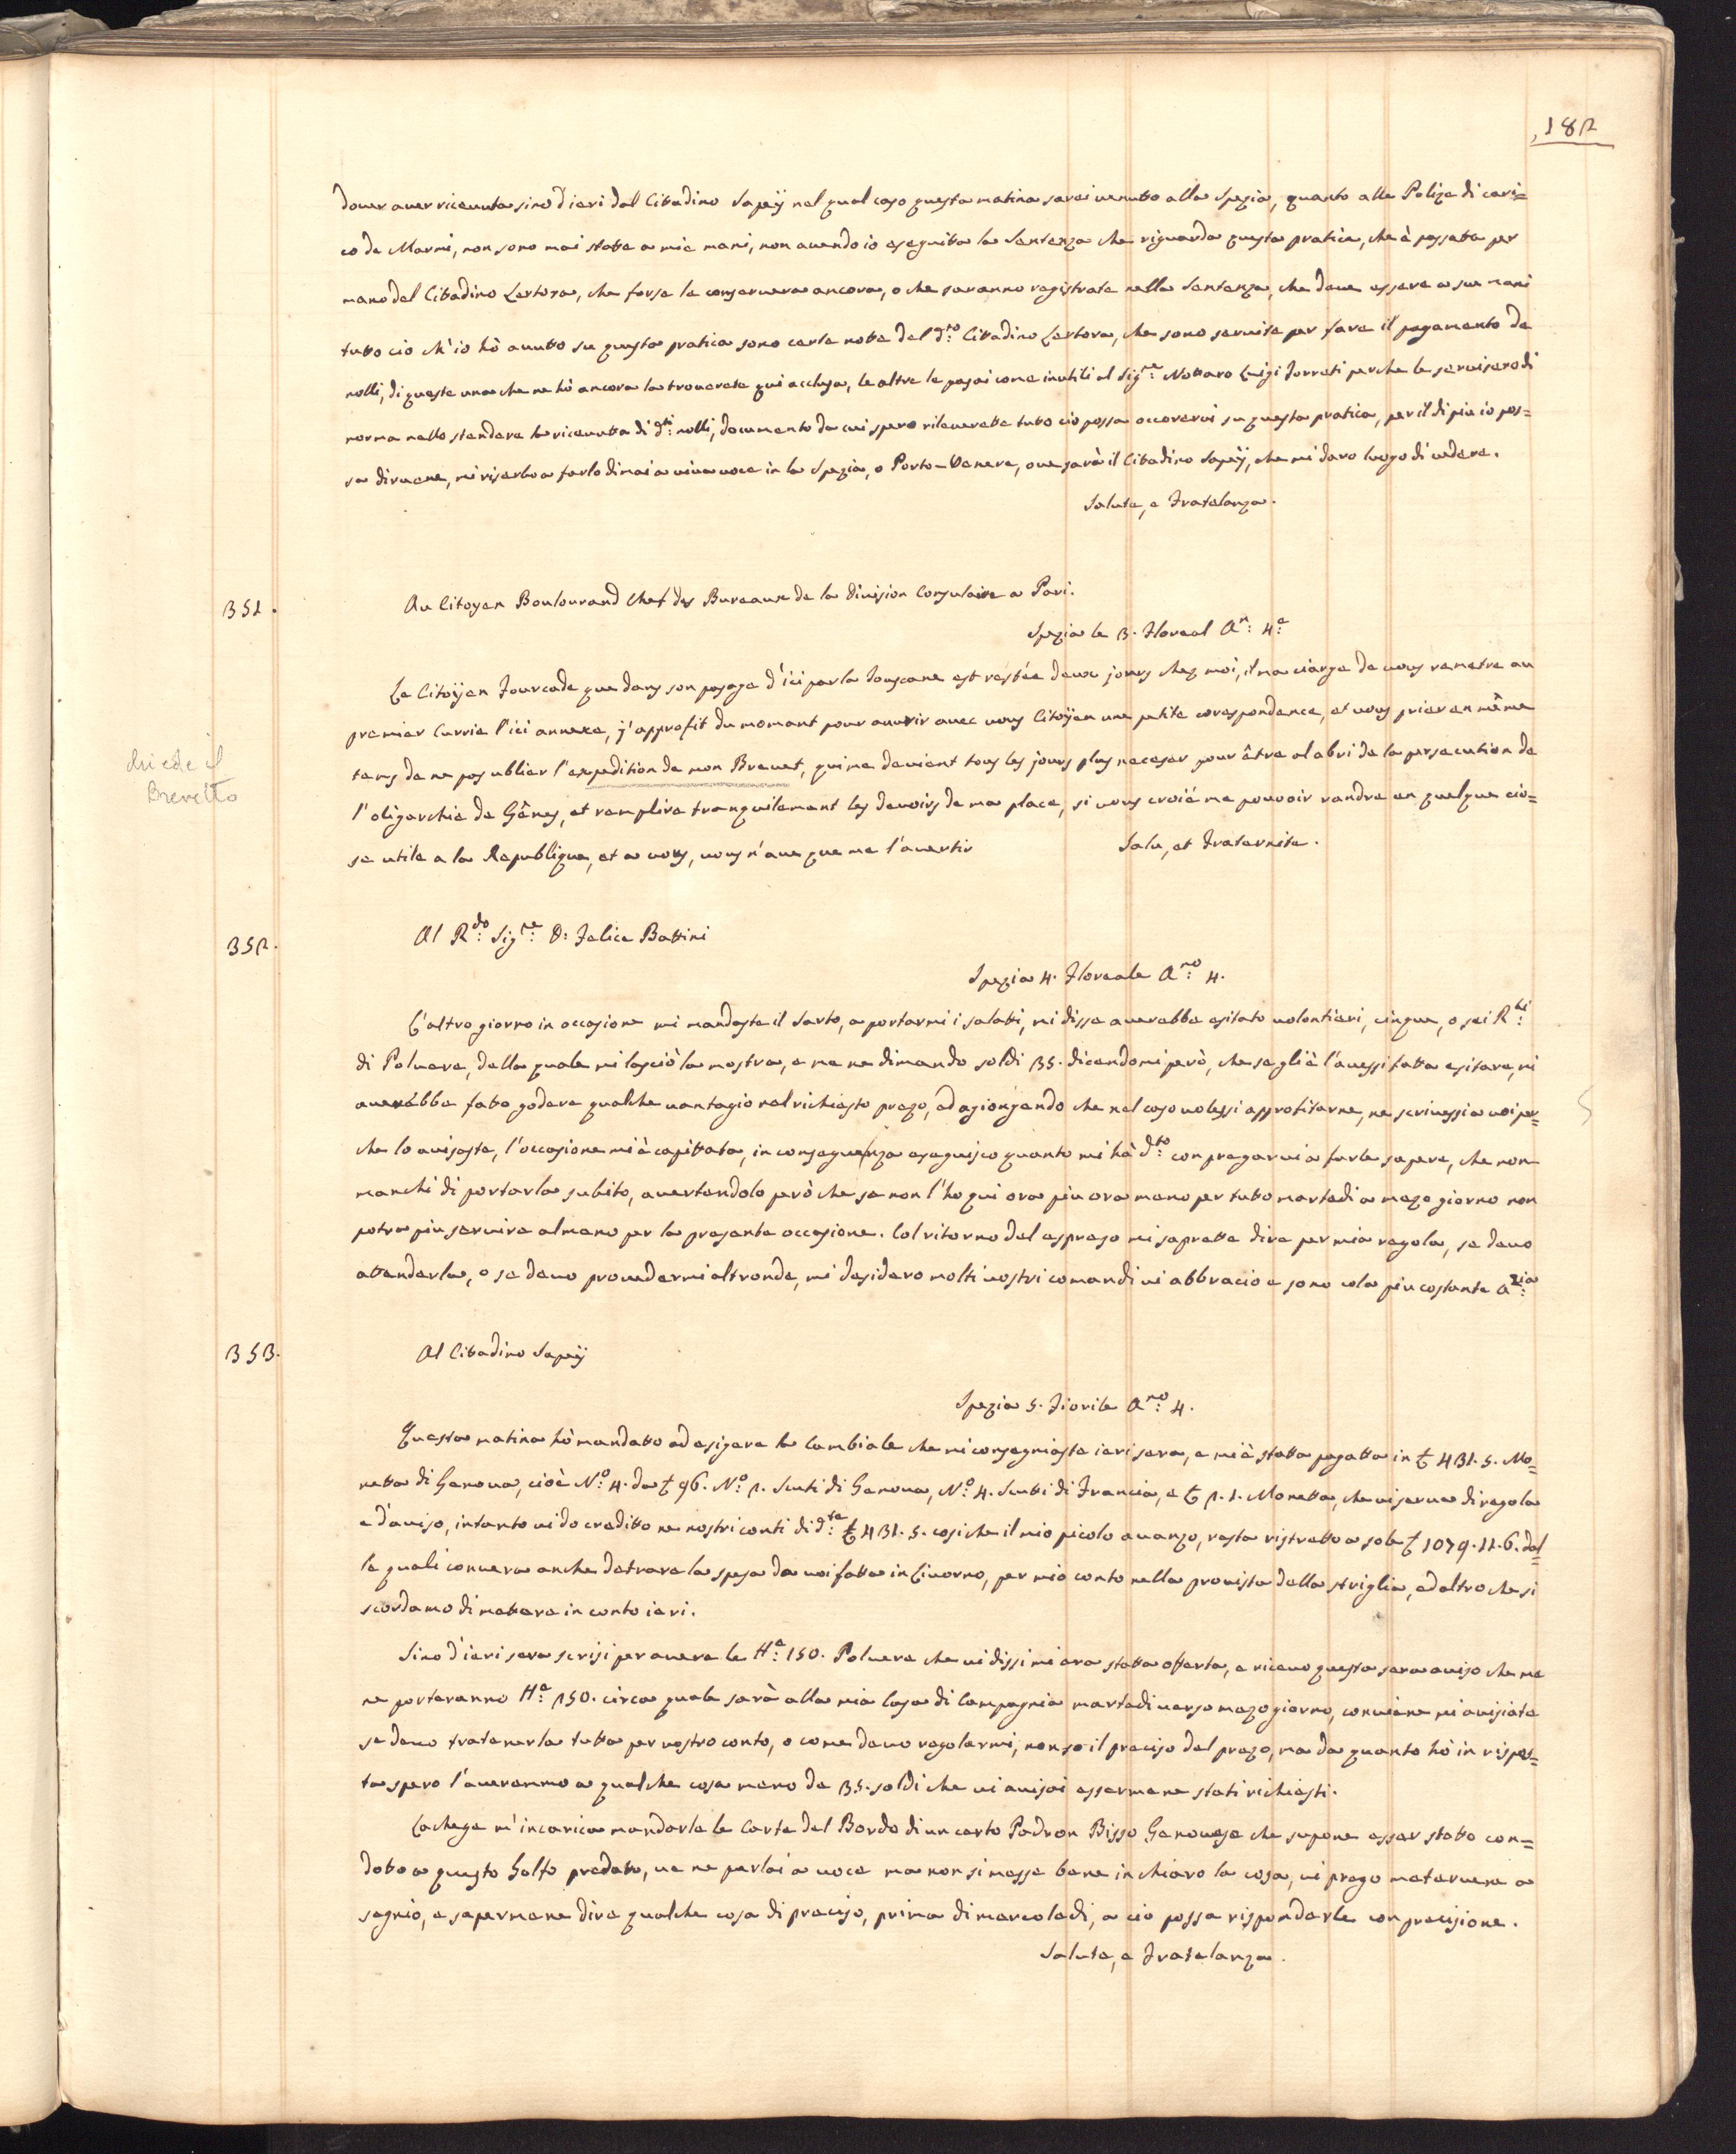 182
dover aver ricevuta sino d'ieri dal Citadino Sapeÿ nel qual caso questa matina sarei venutto alla Spezia, quanto alle Polize di cari=
co de Marmi, non sono mai statte a mie mani, non avendo io eseguitta la Sentenza che riguarda questa pratica, che è passatta per
mano del Citadino Lertora, che forse le conservera ancora, o che saranno registrate nella Sentenza, che deve essere a sue mani
tutto cio ch'io hò avutto su questa pratica sono certe notte del d.to Citadino Lertora, che sono servite per fare il pagamento de
nolli, di queste una che ne hò ancora la troverete qui acclusa, le altre le pasai come inutili al Sig.re Nottaro Luigi Torreti perche le servisero di
norma nello stendere la ricevutta di d.ti nolli, documento da cui spero rileverette tutto ciò possa occorervi su questa pratica, per il di piu io pos=
sa dirvene, mi riserbo a farlo dimai a viva voce in la Spezia, o Porto-Venere, ove sarà il Citadino Sapeÿ, che mi daro luogo di vedere.
Salute, e Fratelanza.
351.
Au Citoyen Boulouvard Chef des Bureaux de la Division Consulaire a Pari.
Spezia le 3. Floreal An: 4e
Le Citoÿen Fourcade que dans son pasage d'ici par la Touscane est restée deux jours chez moi, il ma ciarge de vous remetre au
premier Currie l'ici annexe, j'approfit du momant pour auvrir avec vous Citoÿen une petite corespondence, et vous prier en même
tems de ne pas ublier l'expedition de mon Brevet, qui me devient tous les jours plus necesar pour être al abri de la persecution de
chiede il
Brevetto
l'oligarchie de Gênes, et remplire tranquilement les devoirs de ma place, si vous croié me pouvoir randre en quelque cio=
se utile a la Republique, et a vous, vous n'ave que me l'avertir
Salu, et Fraternite.
352.
Al R.do Sig.re D: Felice Battini
Spezia 4. Floreale A.no 4.
L'altro giorno in occasione mi mandaste il Sarto, a portarmi i salatti, mi disse averebbe esitato volontieri, cinque, o sei R.bi
di Polvere, della quale mi lasciò la mostra, e me ne dimando soldi 35. dicendomi però, che se gliè l'avessi fatta esitare, mi
averebbe fato godere qualche vantagio nel richiesto prezo, ed agiongendo che nel caso volessi approfitarne, ne scrivessi a voi per=
che lo avisaste, l'occasione mi è capittata, in conseguenza eseguisco quanto mi hà d.to con pregarvi a farle sapere, che non
manchi di portarla subito, avertendolo però che se non l'ho qui ora piu ora meno per tuto martedi a mezo giorno non
potra piu servire almeno per la presente occasione. Col ritorno del espresso mi saprette dire per mia regola, se devo
attenderla, o se devo provedermi altronde, mi desidero molti vostri comandi vi abbracio e sono cola piu costante a.zia
353.
Al Citadino Sapeÿ
Spezia 5. Fiorile A.no 4.
Questa matina hò mandatto ad esigere la Cambiale che mi consegniaste ieri sera, e mi è statta pagatta in £ 431. 5. Mo=
netta di Genova, cioè N.o 4. da £ 96. N.o 2. Scuti di Genova, N.o 4. Scutti di Francia, e £ 2. 1. Monetta, che vi serva di regola
e d'aviso, intanto vi do creditto ne nostri conti di d.te £ 431. 5. cosiche il mio picolo avanzo, resta ristretto a sole £ 1079. 11. 6. dal=
le quali convera anche detrare la spesa da voi fatta in Livorno, per mio conto nella provista della striglia, ed altro che si
scordamo di mettere in conto ieri.
Sino d'ieri sera scrisi per avere le H.e 150. Polvere che vi dissi mi era statta offerta, e ricevo questa sera aviso che me
ne porteranno H.e 250. circa quale sarà alla mia Casa di Campagnia martedi verso mezo giorno, conviene mi avisiate
se devo tratenerla tutta per vostro conto, o come devo regolarmi, non so il preciso del prezo, ma da quanto hò in rispos=
ta spero l'averemmo a qualche cosa meno de 35. soldi che vi avisai essermene stati richiesti.
Lachege m'incarica mandarle le Carte del Bordo di un certo Padron Bisso Genovese che supone esser stato con=
dotto a questo Golfo predatto, ve ne parlai a voce ma non si messe bene in chiaro la cosa, vi prego metervene a
segnio, e sapermene dire qualche cosa di preciso, prima di mercoledi, a cio possa risponderle con precisione.
Salute, e Fratelanza.